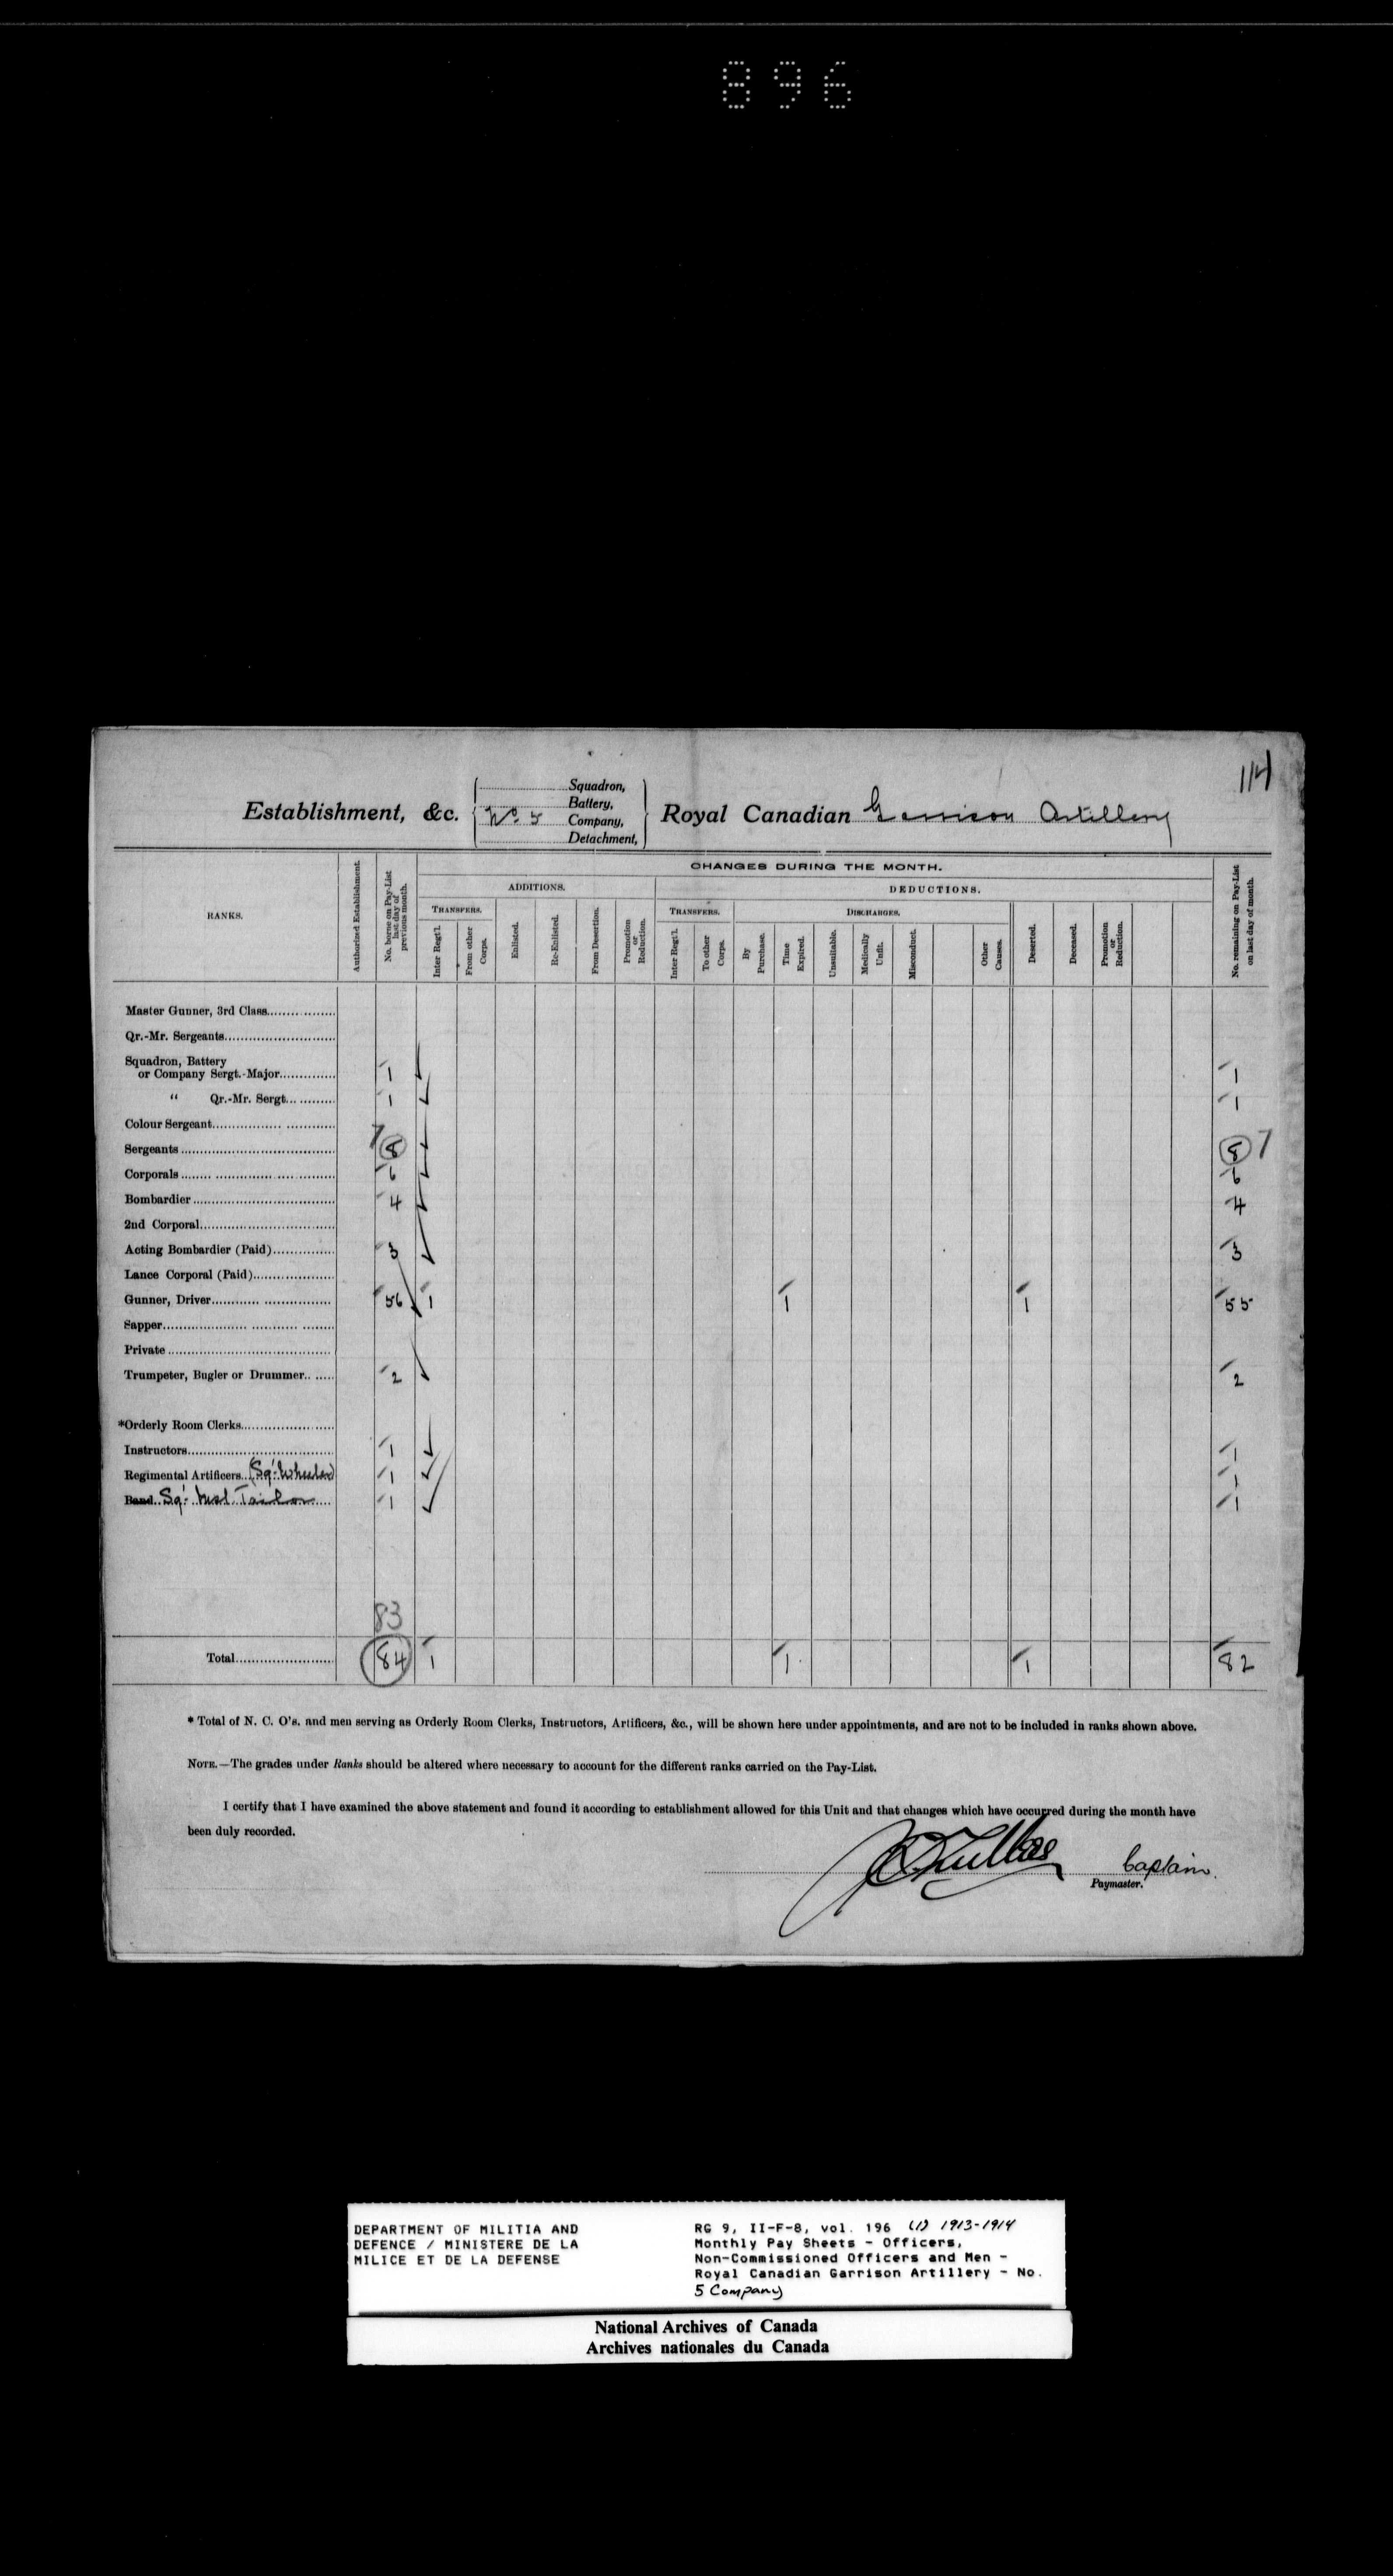 896
114
Establishment, &c. No. 5 Squadron, Battery, Company, Detachment, Royal Canadian Garrison Artillery
CHANGES DURING THE MONTH.
ADDITIONS. DEDUCTIONS.
RANKS. Authorized Establishment. No. borne on Pay-List last day of previous month. TRANSFERS. Inter Reg't'l. From other Corps. Enlisted. Re-Enlisted. From Desertion. Promotion or Reduction. TRANSFERS. Inter Reg't'l. To other Corps. DISCHARGES. By Purchase. Time Expired. Unsuitable. Medically Unfit. Misconduct. Other Causes. Deserted. Deceased. Promotion or Reduction. No. remaining on Pay-List on last day of month.
Master Gunner, 3rd Class
Qr.-Mr. Sergeants
Squadron, Battery
or Company Sergt.-Major 1 1
" Qr.-Mr. Sergt. 1 1
Colour Sergeant
Sergeants 7 8 8 7
Corporals 6 6
Bombardier 4 4
2nd Corporal
Acting Bombardier (Paid) 3 3
Lance Corporal (Paid)
Gunner, Driver 56 1 1 1 55
Sapper
Private
Trumpeter, Bugler or Drummer 2 2
*Orderly Room Clerks
Instructors 1 1
Regimental Artificers (Sgt. Wheeler) 1 1
Band Sgt. Tailor 1 1
83
Total 84 1 1 1 82
* Total of N. C. O's. and men serving as Orderly Room Clerks, Instructors, Artificers, &c., will be shown here under appointments, and are not to be included in ranks shown above.
NOTE.—The grades under Ranks should be altered where necessary to account for the different ranks carried on the Pay-List.
I certify that I have examined the above statement and found it according to establishment allowed for this Unit and that changes which have occurred during the month have
been duly recorded.
Captain.
Paymaster.
DEPARTMENT OF MILITIA AND
DEFENCE / MINISTERE DE LA
MILICE ET DE LA DEFENSE
RG 9, II-F-8, vol. 196 (1) 1913-1914
Monthly Pay Sheets - Officers,
Non-Commissioned Officers and Men -
Royal Canadian Garrison Artillery - No.
5 Company
National Archives of Canada
Archives nationales du Canada